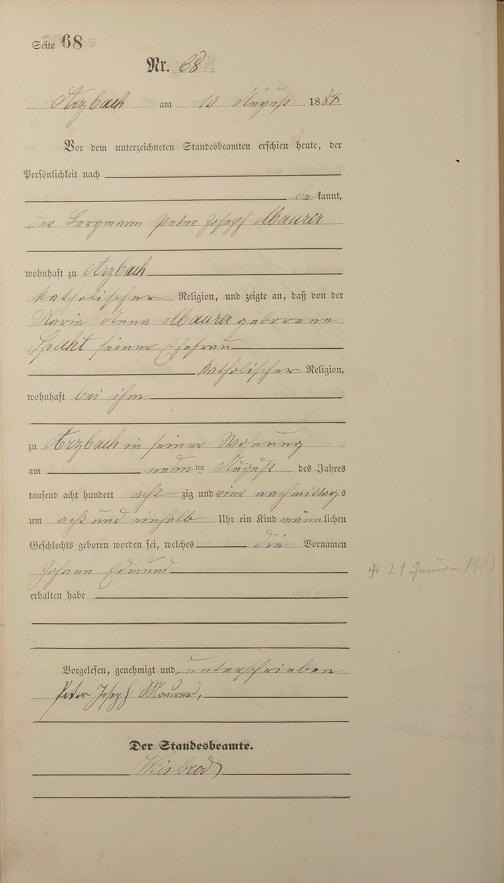 Seite 68
Nr. 68
Arzbach am 10 August 1884
Vor dem unterzeichneten Standesbeamten erschien heute, der
Persönlichkeit nach
be kannt,
der Bergmann Peter Joseph Maurer
wohnhaft zu Arzbach
katholischer Religion, und zeigte an, daß von der
Maria Anna Maurer geborene
seiner Ehefrau
katholischer Religion,
wohnhaft bei ihm
zu Arzbach in seiner Wohnung
am neun ten August des Jahres
tausend acht hundert acht zig und vier nachmittags
um acht und einhalb Uhr ein Kind männlichen
Geschlechts geboren worden sei, welches die Vornamen
Johann Edmund
erhalten habe
✝ 21 Januar
Vorgelesen, genehmigt und unterschrieben
Peter Joseph Maurer,
Der Standesbeamte.
Weisbrod